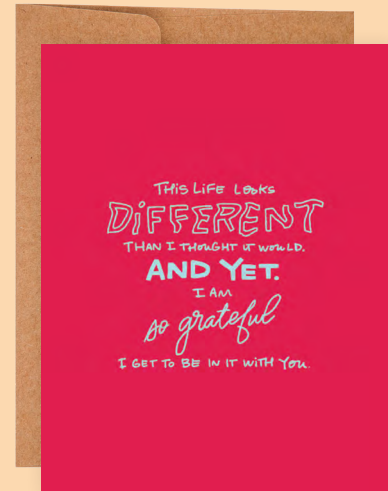 THiS LiFE LOOKS
DiFFERENT
THAN I THOUGHT IT WOULD.
AND YET.
I AM
so grateful
I GET TO BE IN IT WITH YOU.